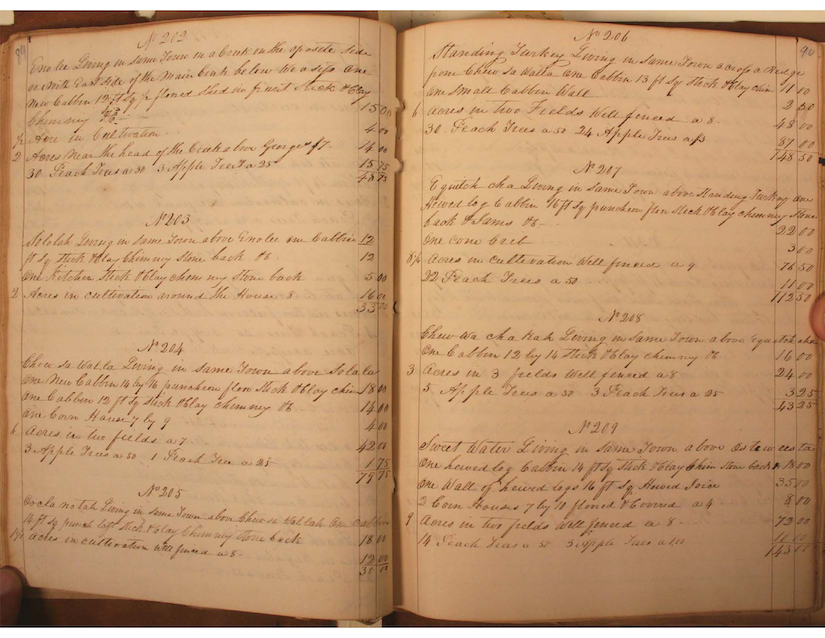 89
No 202
Enolee Living in same Town on a Creek on the oposite side
on North East side of the Main Creek below the a sess One
New Cabbin 12 ft Sq floored Shed in front Stick & Clay
Chimney 15 00
1/2 Acre in Cultivation 4 00
2 Acres Near the head of the Creek above George 7 4 00
30 Peach Trees a 50 3 Apple Trees a 25 15 75
48 75
No 203
Sololah Living in same Town above Enolee One Cabbin 12
ft Sq Stick & Clay Chimney Stone back &c 12
One Kitchen Stick & Clay Chimney Stone back 5 00
2 Acres in cultivation around the House 8 16 00
33 00
No 204
Chew sa Watla Living in same Town above Solala
One New Cabbin 14 by 16 puncheon floor Stick & Clay Chim 18 00
One Cabbin 12 ft Sq Stick & Clay Chimney &c 14 00
One Corn House 7 by 9 4 00
6 Acres in two fields a 7 42 00
3 Apple Trees a 50 1 Peach Tree a 25 1 75
79 75
No 205
Living in same Town above Chew sa Watlah One Cabbin
14 ft Sq punch loft Stick & Clay Chimney Stone back 18 00
1 1/2 Acres in cultivation well fenced a 8 12 00
30 00
90
No 206
Standing Turkey Living in same Town across a Ridge
from Chew sa Watla One Cabbin 13 ft Sq Stick & Clay Chim 11 00
One Small Cabbin Wall 2 50
6 Acres in two Fields Well fenced a 8 48 00
30 Peach Trees a 50 24 Apple Trees a 87 00
148 50
No 207
Equitch cha Living in same Town above Standing Turkey One
Hewed log Cabbin 16 ft Sq puncheon floor Stick & Clay chimney Stone
back & Jams &c 22 00
One Corn Crib 3 00
8 1/2 Acres in cultivation Well fenced a 9 76 50
22 Peach Trees a 50 11 00
112 50
No 208
Chew wa cha kah Living in same Town above Equitch cha
One Cabbin 12 by 14 Stick & Clay chimney &c 16 00
3 Acres in 3 fields Well fenced a 8 24 00
5 Apple Trees a 50 3 Peach Trees a 25 3 25
43 25
No 209
Sweet Water Living in same Town above
One hewed log Cabbin 14 ft Sq Stick & Clay Chim Stone back 18 00
One Wall of hewed logs 16 ft Sq Hewed Joice 35 00
2 Corn Houses 7 by 11 floored & Covered a 4 8 00
9 Acres in two fields Well fenced a 8 72 00
14 Peach Trees a 50 3 Apple Trees a 10 00
143 00